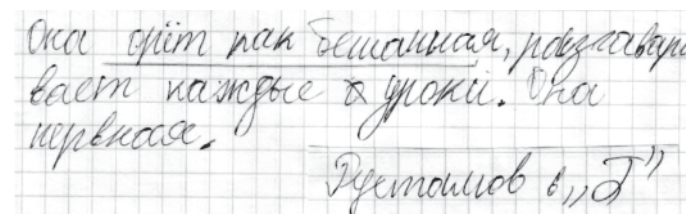 Она орёт как бешанная, разгавари
вает каждые уроки. Она
нервная.
Рустамов 8 „Г”